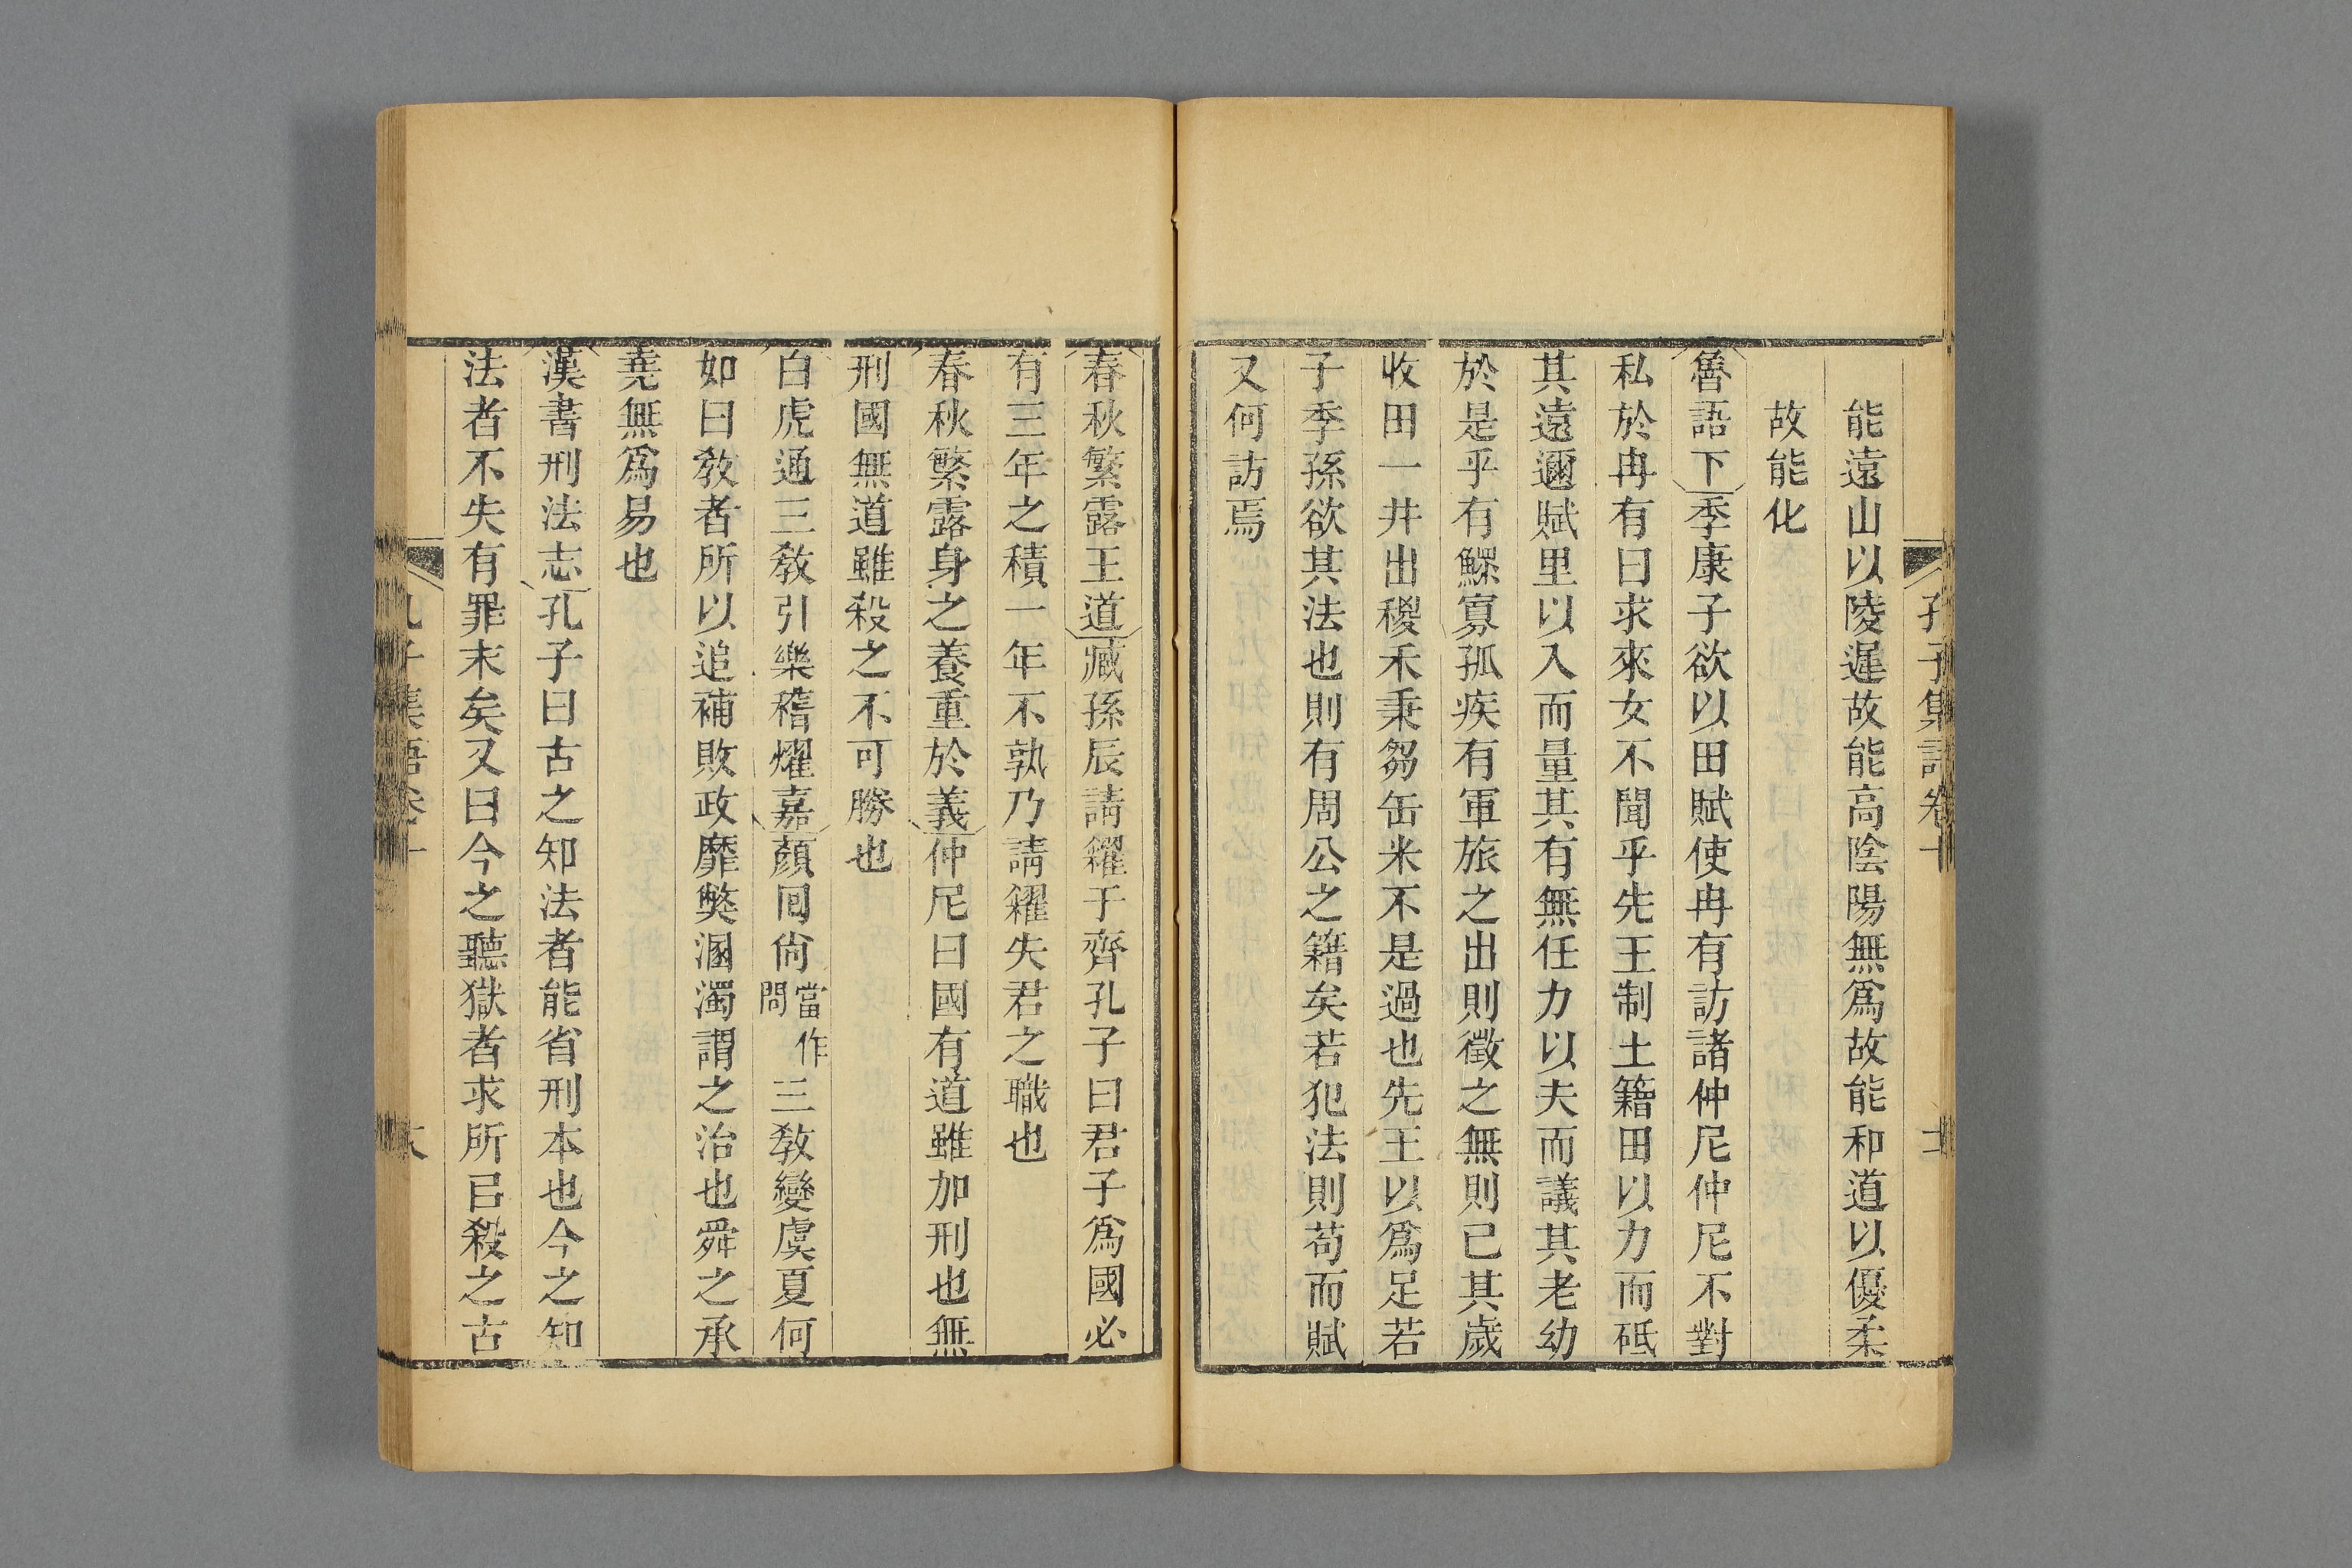 孔子集語卷十
能遠山以陵遲故能高陰陽無爲故能和道以優柔
故能化
魯語下季康子欲以田賦使冉有訪諸仲尼仲尼不對
私於冉有曰求來女不聞乎先王制土籍田以力而砥
其遠邇賦里以入而量其有無任力以夫而議其老幼
於是乎有鰥寡孤疾有軍旅之出則徵之無則已其歲
收田一井出稯禾秉芻缶米不是過也先王以爲足若
子季孫欲其法也則有周公之籍矣若犯法則苟而賦
又何訪焉
春秋繁露王道臧孫辰請糴于齊孔子曰君子爲國必
有三年之積一年不孰乃請糴失君之職也
春秋繁露身之養重於義仲尼曰國有道雖加刑也無
刑國無道雖殺之不可勝也
白虎通三教引樂稽燿嘉顏回尙當作問三教變虞夏何
如曰教者所以追補敗政靡獘溷濁謂之治也舜之承
堯無爲易也
漢書刑法志孔子曰古之知法者能省刑本也今之知
法者不失有罪末矣又曰今之聽獄者求所㠯殺之古
孔子集語卷十